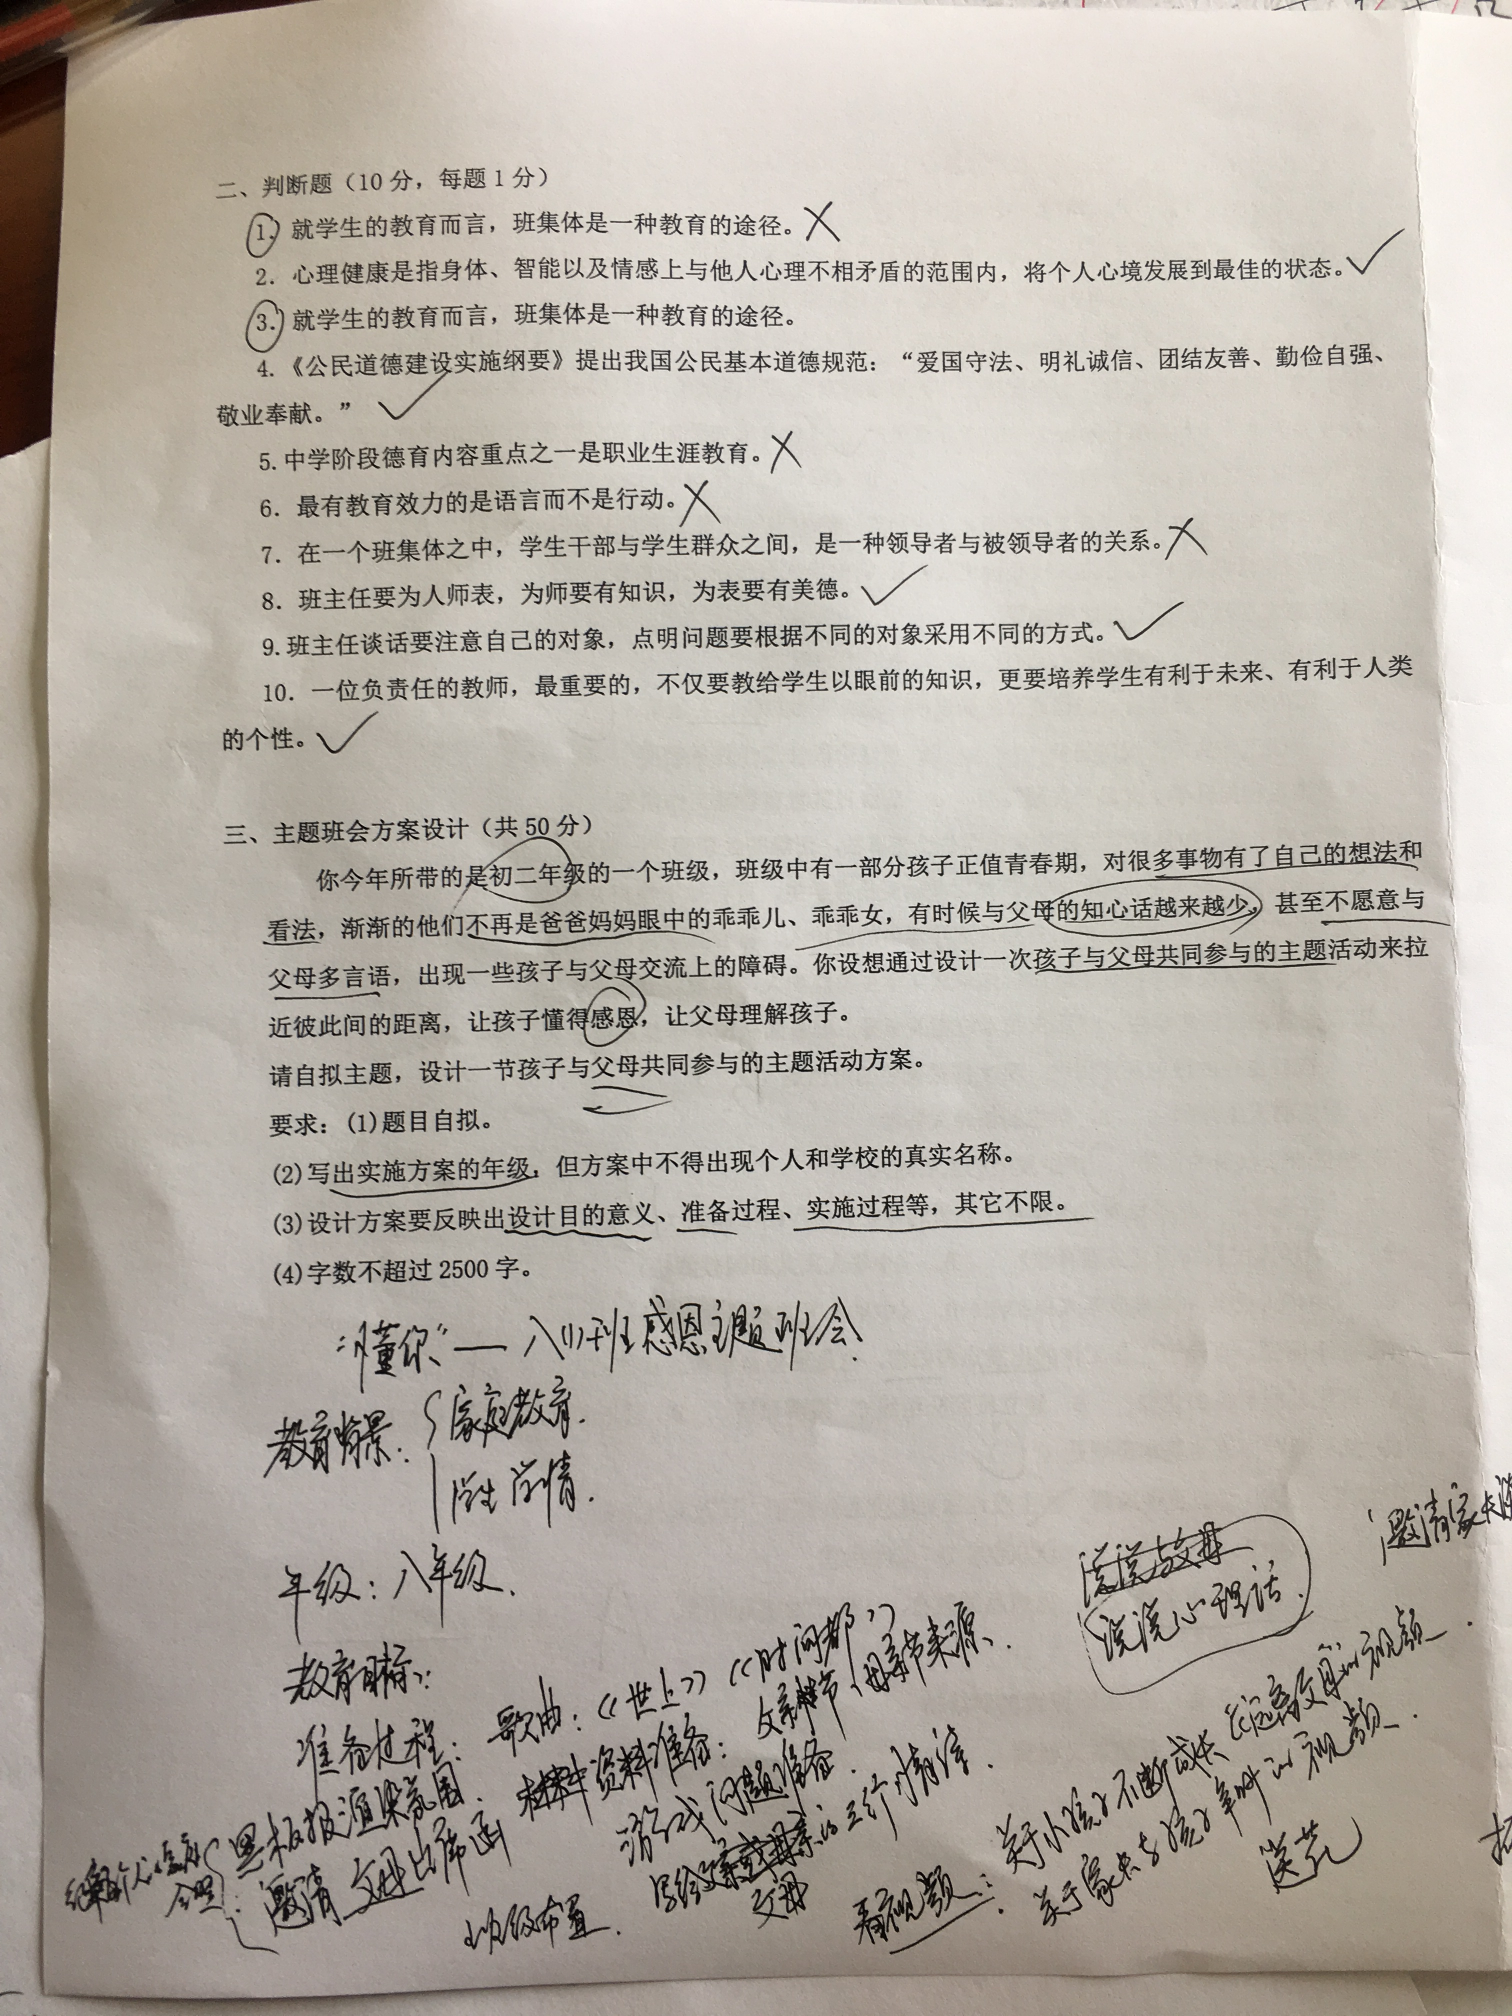 二、判断题（10分，每题1分）
1. 就学生的教育而言，班集体是一种教育的途径。×
2. 心理健康是指身体、智能以及情感上与他人心理不相矛盾的范围内，将个人心境发展到最佳的状态。✓
3. 就学生的教育而言，班集体是一种教育的途径。
4.《公民道德建设实施纲要》提出我国公民基本道德规范：“爱国守法、明礼诚信、团结友善、勤俭自强、
敬业奉献。” ✓
5. 中学阶段德育内容重点之一是职业生涯教育。×
6. 最有教育效力的是语言而不是行动。×
7. 在一个班集体之中，学生干部与学生群众之间，是一种领导者与被领导者的关系。×
8. 班主任要为人师表，为师要有知识，为表要有美德。✓
9. 班主任谈话要注意自己的对象，点明问题要根据不同的对象采用不同的方式。✓
10. 一位负责任的教师，最重要的，不仅要教给学生以眼前的知识，更要培养学生有利于未来、有利于人类
的个性。✓
三、主题班会方案设计（共50分）
你今年所带的是初二年级的一个班级，班级中有一部分孩子正值青春期，对很多事物有了自己的想法和
看法，渐渐的他们不再是爸爸妈妈眼中的乖乖儿、乖乖女，有时候与父母的知心话越来越少，甚至不愿意与
父母多言语，出现一些孩子与父母交流上的障碍。你设想通过设计一次孩子与父母共同参与的主题活动来拉
近彼此间的距离，让孩子懂得感恩，让父母理解孩子。
请自拟主题，设计一节孩子与父母共同参与的主题活动方案。
要求：(1)题目自拟。
(2)写出实施方案的年级，但方案中不得出现个人和学校的真实名称。
(3)设计方案要反映出设计目的意义、准备过程、实施过程等，其它不限。
(4)字数不超过2500字。
“懂你”——八(1)班感恩主题班会
教育背景：家庭教育.
学生学情.
年级：八年级.
教育目标：
说说心理话.
邀请家长
准备过程：歌曲：《世上》《时间都》
黑板报渲染氛围. 资料准备：父亲节、母亲节来源.
邀请父母出席函 游戏问题准备.
班级布置. 写给父母的三行情诗.
看视频：关于小孩子不断成长 远离父母的视频.
关于家长与孩子争吵的视频.
送花